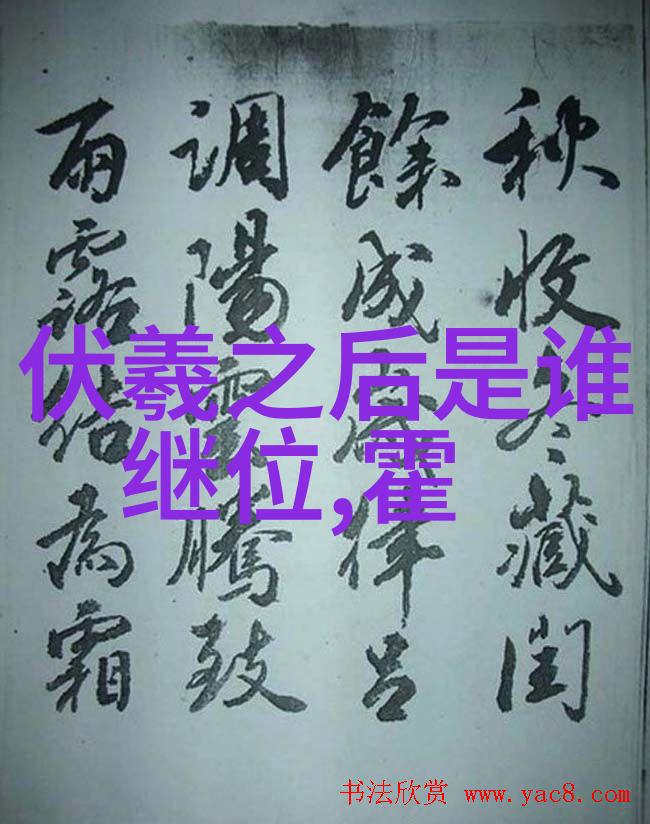 秋收冬藏閏
餘成歲律呂
調陽雲騰致
雨露結為霜
伏羲之后是谁
继位,霍
书法欣赏 www.yac8.com